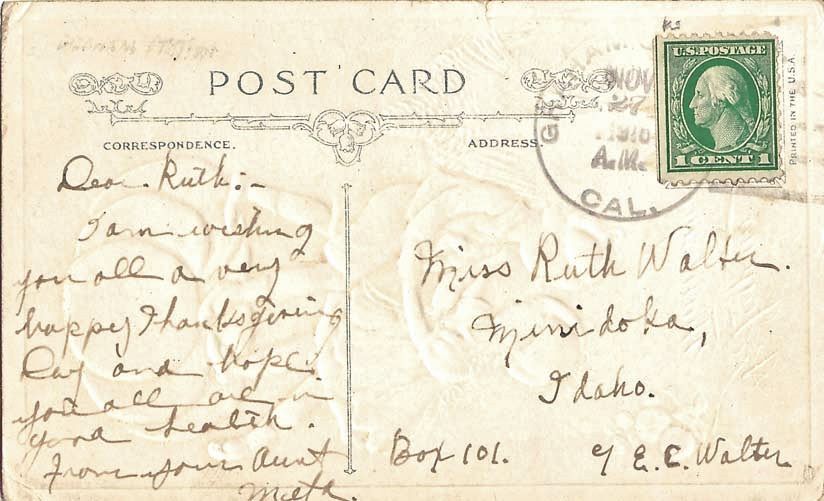 POST CARD
CORRESPONDENCE.
ADDRESS.
NOV
27
A.M.
CAL.
U.S. POSTAGE
1 CENT 1
PRINTED IN THE U.S.A.
Dear Ruth:-
I am wishing
you all a very
happy Thanksgiving
Day and hope
you all are in
good health.
From your Aunt
Meta.
Miss Ruth Walter.
Minidoka,
Idaho.
Box 101.
c/ E.C. Walter